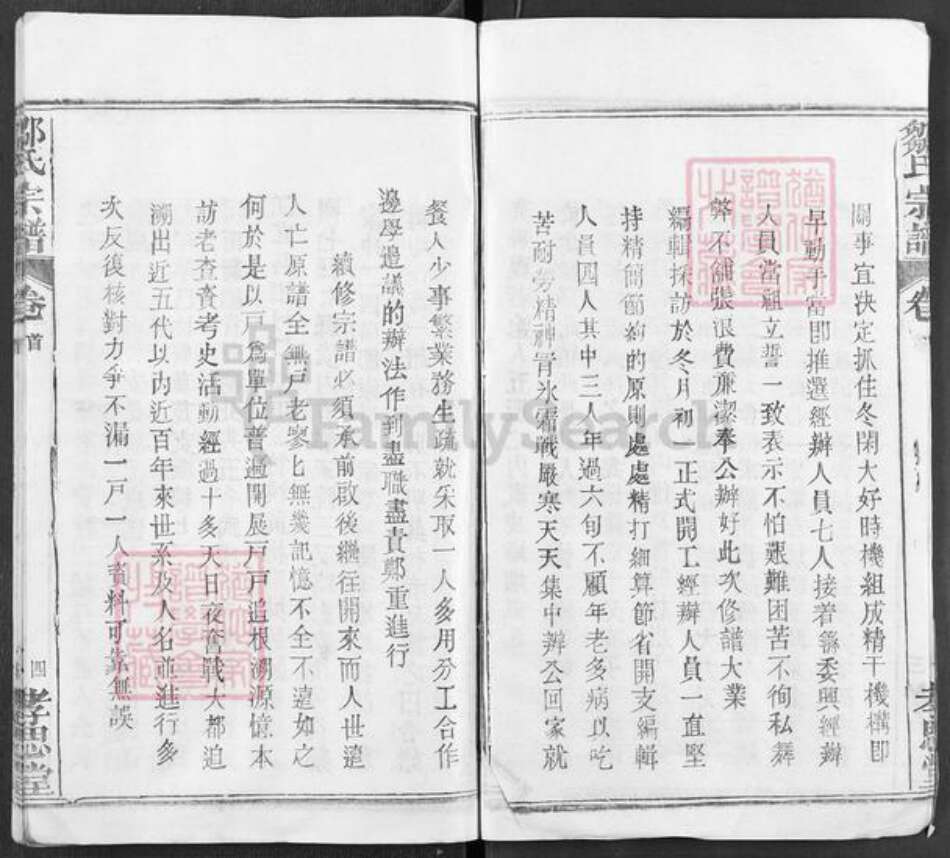 鄒氏宗譜
卷
關事宜抉定抓住冬閑大好時機組成精干機構卽
早動手當卽推選經辦人員七人接着籌委與經辦
人員當祖立誓一致表示不怕艱難困苦不徇私舞
弊不鋪張浪費廉潔奉公辦好此次修譜大業
編輯採訪於冬月初一正式開工經辦人員一直堅
持精簡節約的原則處處精打細算節省開支編輯
人員四人其中三人年過六旬不顧年老多病以吃
苦耐勞精神冒氷霜戰嚴寒天天集中辦公回家就
孝思堂
餐人少事繁業務生疏就采取一人多用分工合作
邊學邊議的辦法作到盡職盡責鄭重進行
續修宗譜必須承前啟後繼往開來而人世遠
人亡原譜全無戸老寥匕無幾記憶不全不遠如之
何於是以戸為單位普遍開展戸戸追根溯源憶本
訪老查賚考史活動經過十多天日夜奮戰大都追
溯出近五代以內近百年來世系及人名並進行多
次反復核對力爭不漏一戸一人資料可靠無誤
鄒氏宗譜
卷首
四
孝思堂
FamilySearch